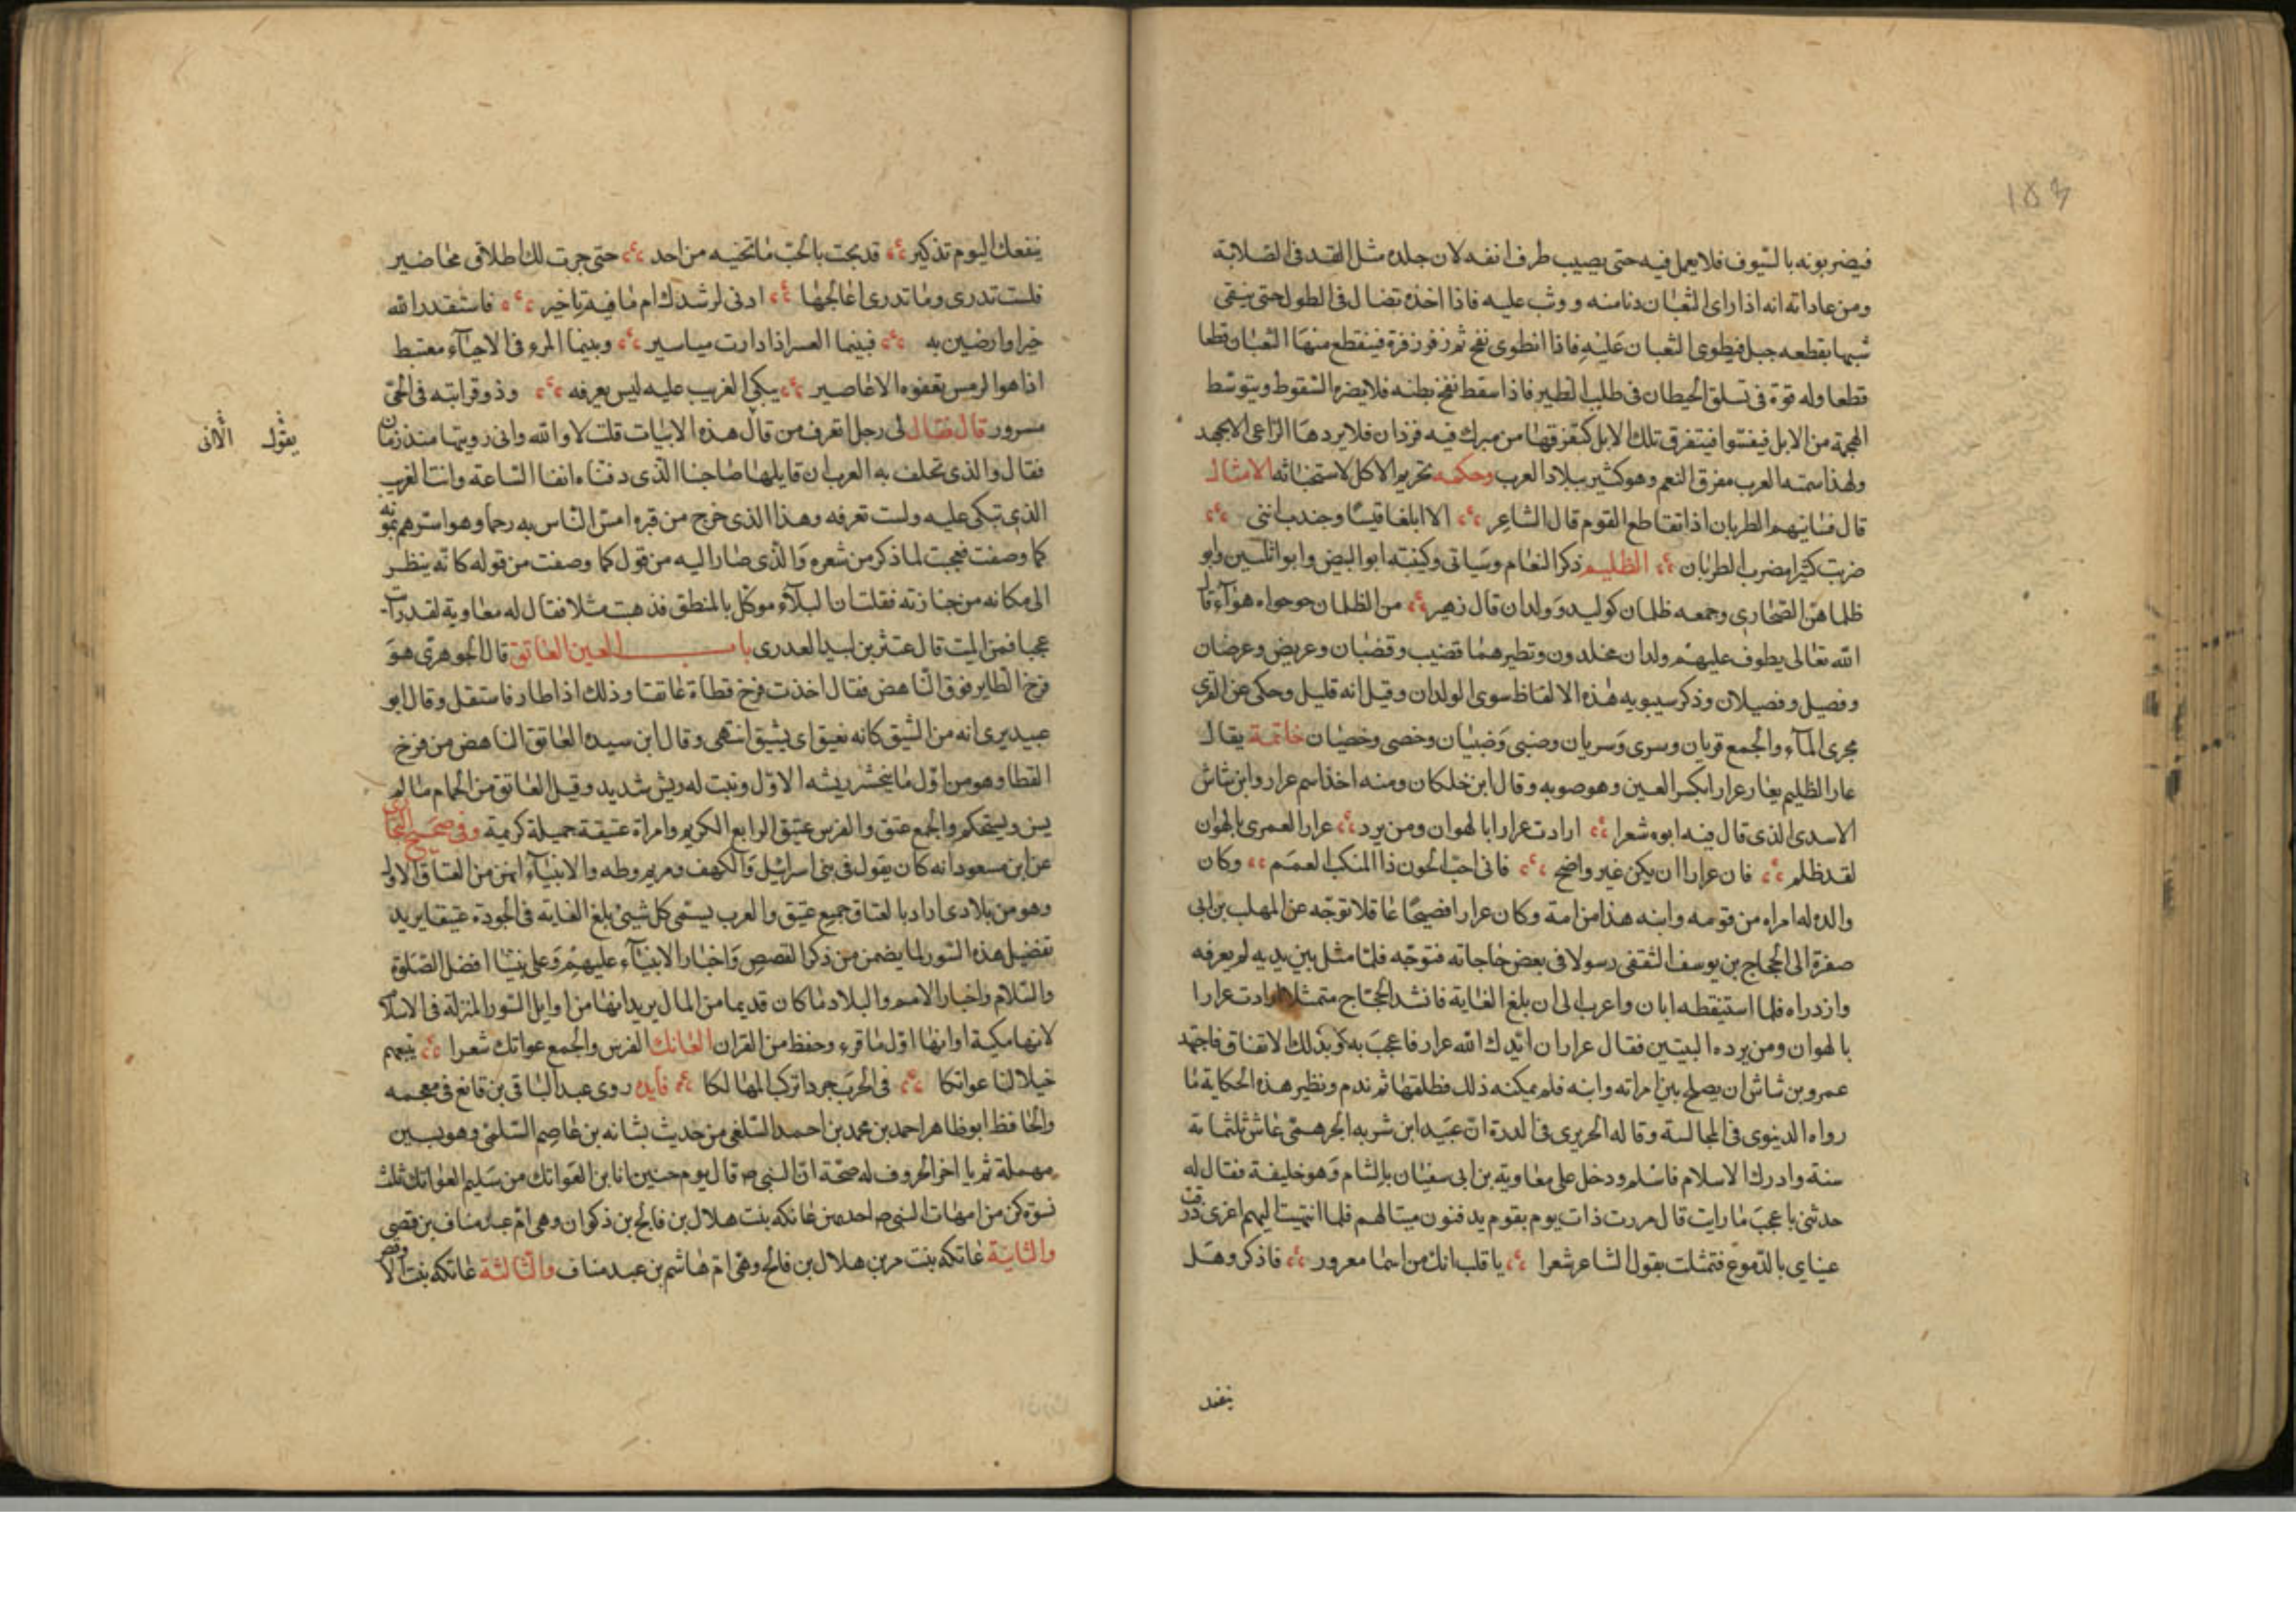 ١٥٣
فيضربونه بالسيوف فلا يعمل فيه حتى يصيب طرف انفه لان جلده مثل القد فى الصلابة
ومن عاداته انه اذا راى الثعبان دنا منه ووثب عليه فاذا اخذه تضال فى الطول حتى يبقى
شبيها بقطعه حبل فيطوى الثعبان عليه فاذا انطوى نفخ ثم زفر زفرة فينقطع منها الثعبان قطعا
قطعا وله قوة فى تسلق الحيطان فى طلب الطير فاذا سقط نفخ بطنه فلا يضره السقوط ويتوسط
الهجمة من الابل فيفسوا فيتفرق تلك الابل كتفرقها من مبرك فيه قردان فلا يردها الراعى الا بجهد
ولهذا سمته العرب مفرق النعم وهو كثير ببلاد العرب وحكمه تحريم الاكل لاستخباثه الامثال
قال فسا بينهم الظربان اذا تقاطع القوم قال الشاعر الا ابلغا قيسا وجندب اننى
ضربت كثيرا مضرب الظربان الظليم ذكر النعام وسياتى وكنيته ابو البيض وابو ثلاثين وابو
الصحارى وجمعه ظلمان كوليد وولدان قال زهير من الظلمان جوجواه هوآء قال
الله تعالى يطوف عليهم ولدان مخلدون ونظيرهما قضيب وقضبان وعريض وعرضان
وفصيل وفصلان وذكر سيبويه هذه الالفاظ سوى الولدان وقيل انه قليل وحكى عن القرى
مجرى المآء والجمع قريان وسرى وسريان وصبى وصبيان وخصى وخصيان خاتمة يقال
عار الظليم يعار عرارا بكسر العين وهو صوبه وقال ابن خلكان ومنه اخذ اسم عرار وابن شاش
الاسدى الذى قال فيه ابوه شعرا ارادت عرارا بالهوان ومن يرد عرارا لعمرى بالهوان
لقد ظلم فان عرارا ان يكن غير واضح فانى احب الجون ذا المنكب العمم وكان
والده له امراه من قومه وابنه هذا من امة وكان عرار افصيحا عاقلا توجه عن المهلب بن ابى
صفرة الى الحجاج بن يوسف الثقفى رسولا فى بعض حاجاته فتوجه فلما مثل بين يديه لم يعرفه
وازدراه فلما استنقطه ابان واعرب الى ان بلغ الغاية فانشد الحجاج متمثلا ارادت عرارا
بالهوان ومن يرده البيتين فقال عرار ان ايدك الله عرار فاعجب به وبذلك الاتفاق فاجتهد
عمرو بن شاش ان يصلح بين امراته وابنه فلم يمكنه ذلك فطلقها ثم ندم ونظير هذه الحكاية ما
رواه الدينورى فى المجالسة وقاله الحريرى فى الدرة ان عبيد ابن شربه الجرهمى عاش ثلثمائة
سنة وادرك الاسلام فاسلم ودخل على معاوية بن ابى سفيان بالشام وهو خليفة فقال له
حدثنى باعجب ما رايت قال مررت ذات يوم بقوم يدفنون ميتا لهم فلما انتهيت اليهم اغرورقت
عيناى بالدموع فتمثلت بقول الشاعر شعرا يا قلب انك من اسما مغرور فاذكر وهل
ينفعك اليوم تذكير قد بحت بالحب ما تخفيه من احد حتى جرت لك اطلاقى محاضير
فلست تدرى وما تدرى اعاجلها ادنى لرشدك ام ما فيه تاخير فاستقدر الله
خيرا وارضين به فبينما العسر اذا دارت مياسير وبينما المرء فى الاحيآء مغتبط
اذا هو الرمس تعفوه الاعاصير يبكى الغريب عليه ليس يعرفه وذو قرابته فى الحى
مسرور قال فقال لى رجل اتعرف من قال هذه الابيات قلت لا والله وانى رويتها منذ زمان
فقال والذى تحلف به العرب ان قايلها صاحبنا الذى دفناه انفا الساعة وانت الغريب
الذى تبكى عليه ولست تعرفه وهذا الذى خرج من قبره امس الناس به رحما وهو اسرهم بموته
كما وصفت فعجبت لما ذكر من شعره والذى صار اليه من قول كما وصفت من قوله كانه ينظر
الى مكانه من جنازته فقلت ان البلآء موكل بالمنطق فذهبت مثلا فقال له معاوية لقد رايت
عجبا فمن الميت قال عثير بن لبيد العدرى باب العين العاتق قال الجوهرى هو
فرخ الطاير فوق الناهض فقال اخذت فرخ قطاة عاتقا وذلك اذا طار فاستقل وقال ابو
عبيد يرى انه من السبق كانه يعتق اى يسبق انتهى وقال ابن سيده العاتق الناهض من فرخ
القطا وهو من اول ما ينحسر ريشه الاول ونبت له ريش شديد وقيل العاتق من الحمام ما لم
يسن ويستحكم والجمع عتق والفرس عتيق الرابع الكريم وامراة عتيقة جميلة كريمة وفى صحيح البخارى
عن ابن مسعود انه كان يقول فى بنى اسرائيل والكهف ومريم وطه والانبيآء انهن من العتاق الاول
وهو من بلادى اراد بالعتاق جميع عتيق والعرب يسمى كل شيئ بلغ الغايه فى الجودة عتيقا يريد
تفضيل هذه السور لما يضمن من ذكر القصص واخبار الانبيآء عليهم وعلى نبينا افضل الصلوة
والسلام واخبار الامم والبلاد ما كان قديما من المال يريد انها من اوايل السور المنزلة فى الاسلام
لانها مكية او انها اول ما قرء وحفظ من القران العاتك الفرس والجمع عواتك شعرا نتبعهم
خيلا لنا عواتكا فى الحرب جردا تركب المهالكا فايده روى عبد الباقى بن قانع فى معجمه
والحافظ ابو طاهر احمد بن محمد بن احمد السلفى من حديث بشانه بن عاصم السلمى وهو بسين
مهملة ثم يا اخر الحروف له صحة ان النبى ص قال يوم حنين انا بن العواتك من سليم العواتك ثلث
نسوة كن من امهات النبى ص احدهن عاتكه بنت هلال بن فالح بن ذكوان وهى ام عبد مناف بن قصى
والثانية عاتكه بنت مره بن هلال بن فالح وهى ام هاشم بن عبد مناف والثالثة عاتكه بنت الاوقص